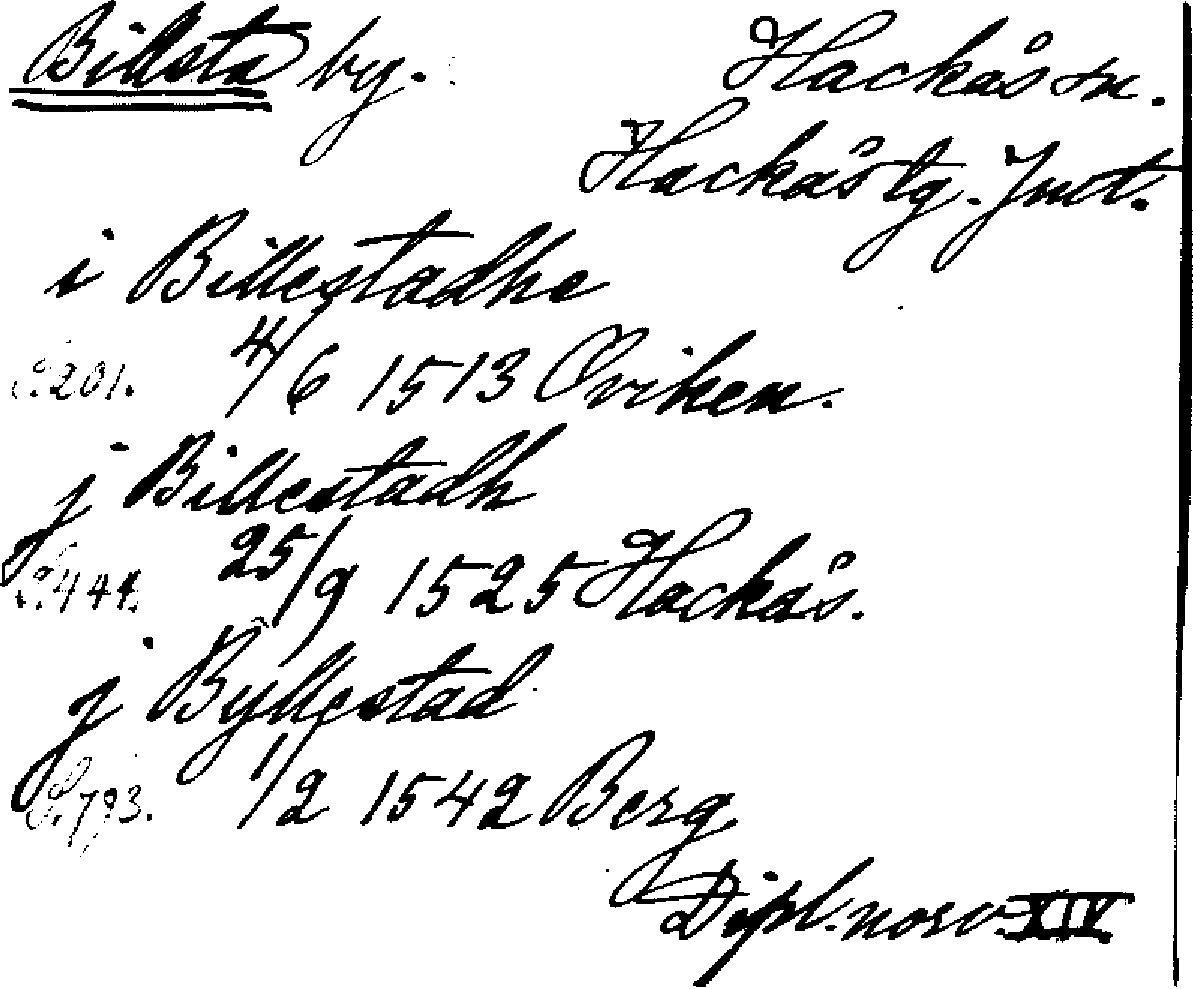 Billsta by. Hackås sn.
Hackås tg. Jmt.
i Billestadhe
S.201. 4/6 1513 Oviken.
j Billestadh
S.444. 25/9 1525 Hackås.
j Byllestad
S.793. 1/2 1542 Berg
Dipl. norv. XIV